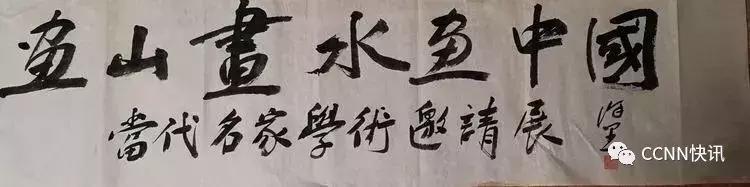 画山畫水画中國
當代名家學術邀請展
CCNN快讯